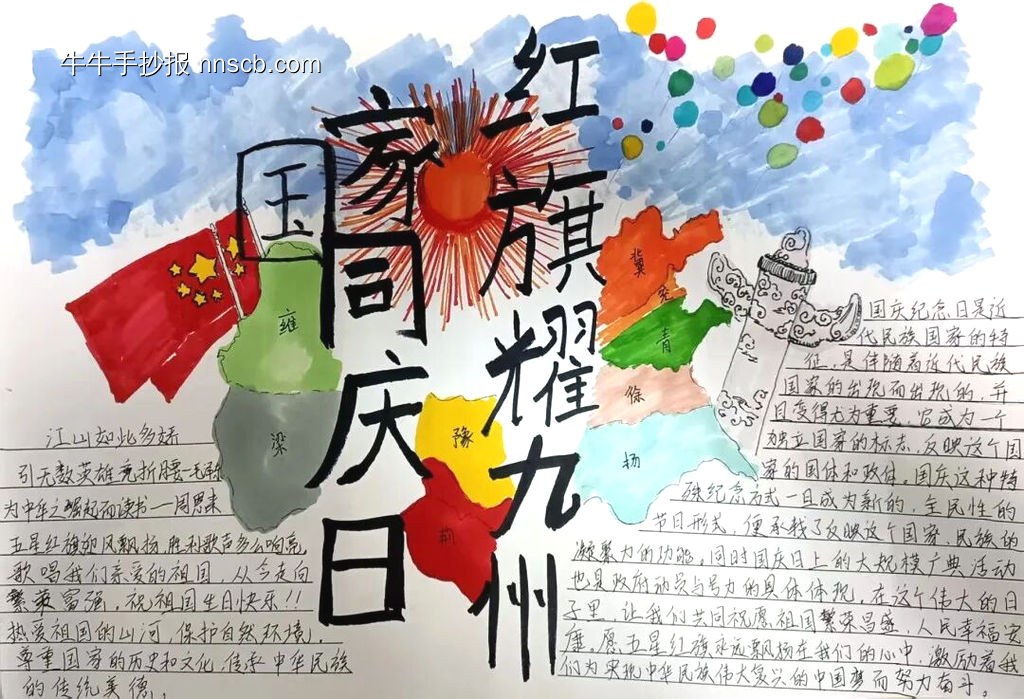 牛牛手抄报 nnscb.com
红旗耀九州
国家同庆日
雍
梁
豫
荆
冀
兖
青
徐
扬
江山如此多娇
引无数英雄竞折腰—毛
为中华之崛起而读书—周恩来
五星红旗迎风飘扬,胜利歌声多么响亮
歌唱我们亲爱的祖国,从今走向
繁荣富强,祝祖国生日快乐!!
热爱祖国的山河,保护自然环境,
尊重国家的历史和文化,传承中华民族
的传统美德。
国庆纪念日是近
代民族国家的特
征,是伴随着近代民族
国家的出现而出现的,并
且变得尤为重要,它成为一个
独立国家的标志,反映这个国
家的国体和政体,国庆这种特
殊纪念方式一旦成为新的,全民性的
节日形式,便承载了反映这个国家,民族的
凝聚力的功能,同时国庆日上的大规模广典活动
也是政府动员与号力的具体体现,在这个伟大的日
子里,让我们共同祝愿祖国繁荣昌盛,人民幸福安
康,愿五星红旗永远飘扬在我们的心中,激励着我
们为实现中华民族伟大复兴的中国梦而努力奋斗